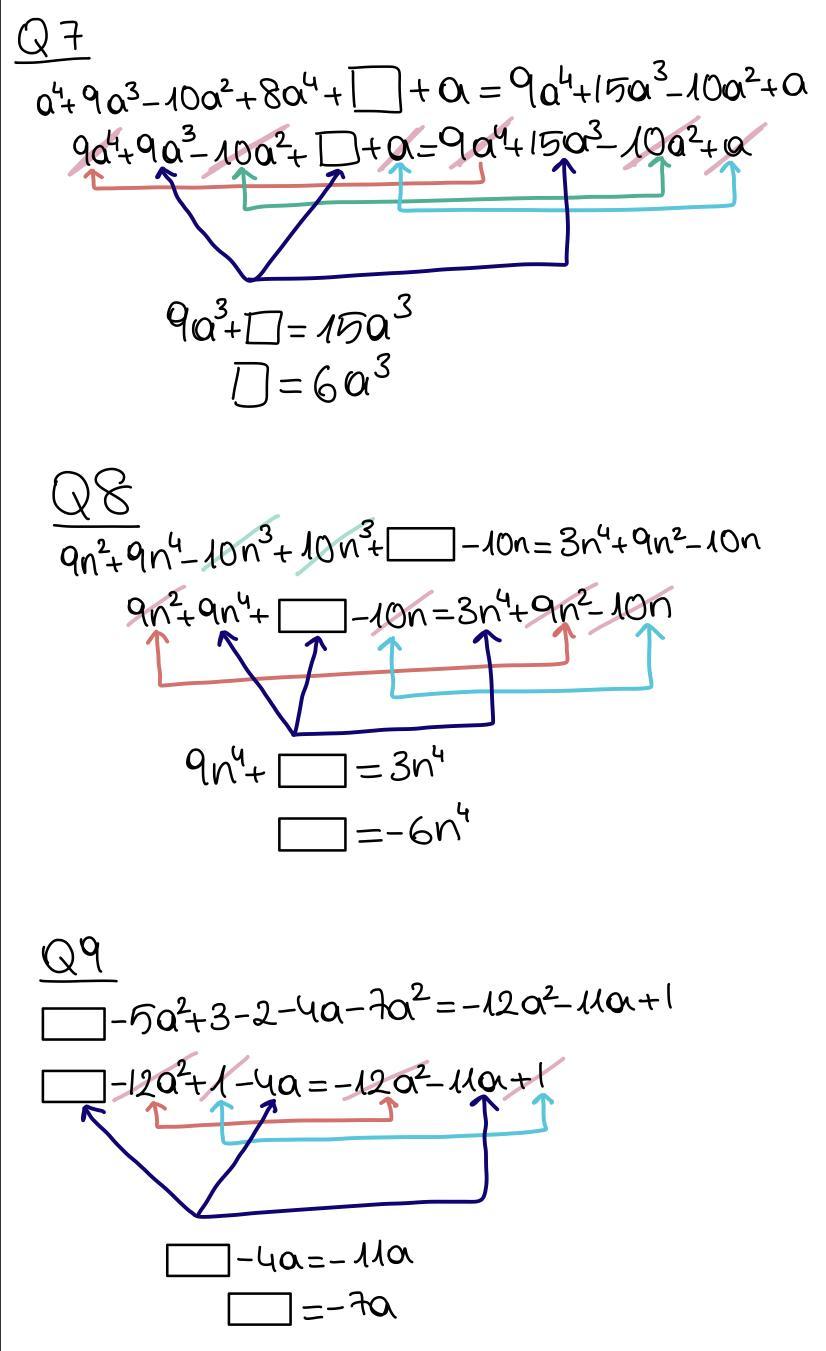 Q7
a⁴+9a³-10a²+8a⁴+□+a=9a⁴+15a³-10a²+a
9a⁴+9a³-10a²+□+a=9a⁴+15a³-10a²+a
9a³+□=15a³
□=6a³
Q8
9n²+9n⁴-10n³+10n³+□-10n=3n⁴+9n²-10n
9n²+9n⁴+□-10n=3n⁴+9n²-10n
9n⁴+□=3n⁴
□=-6n⁴
Q9
□-5a²+3-2-4a-7a²=-12a²-11a+1
□-12a²+1-4a=-12a²-11a+1
□-4a=-11a
□=-7a